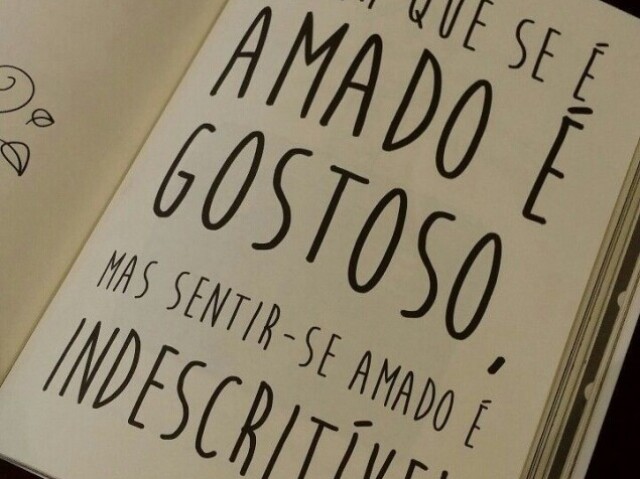 QUE SE É
AMADO É
GOSTOSO,
MAS SENTIR-SE AMADO É
INDESCRITÍVEL